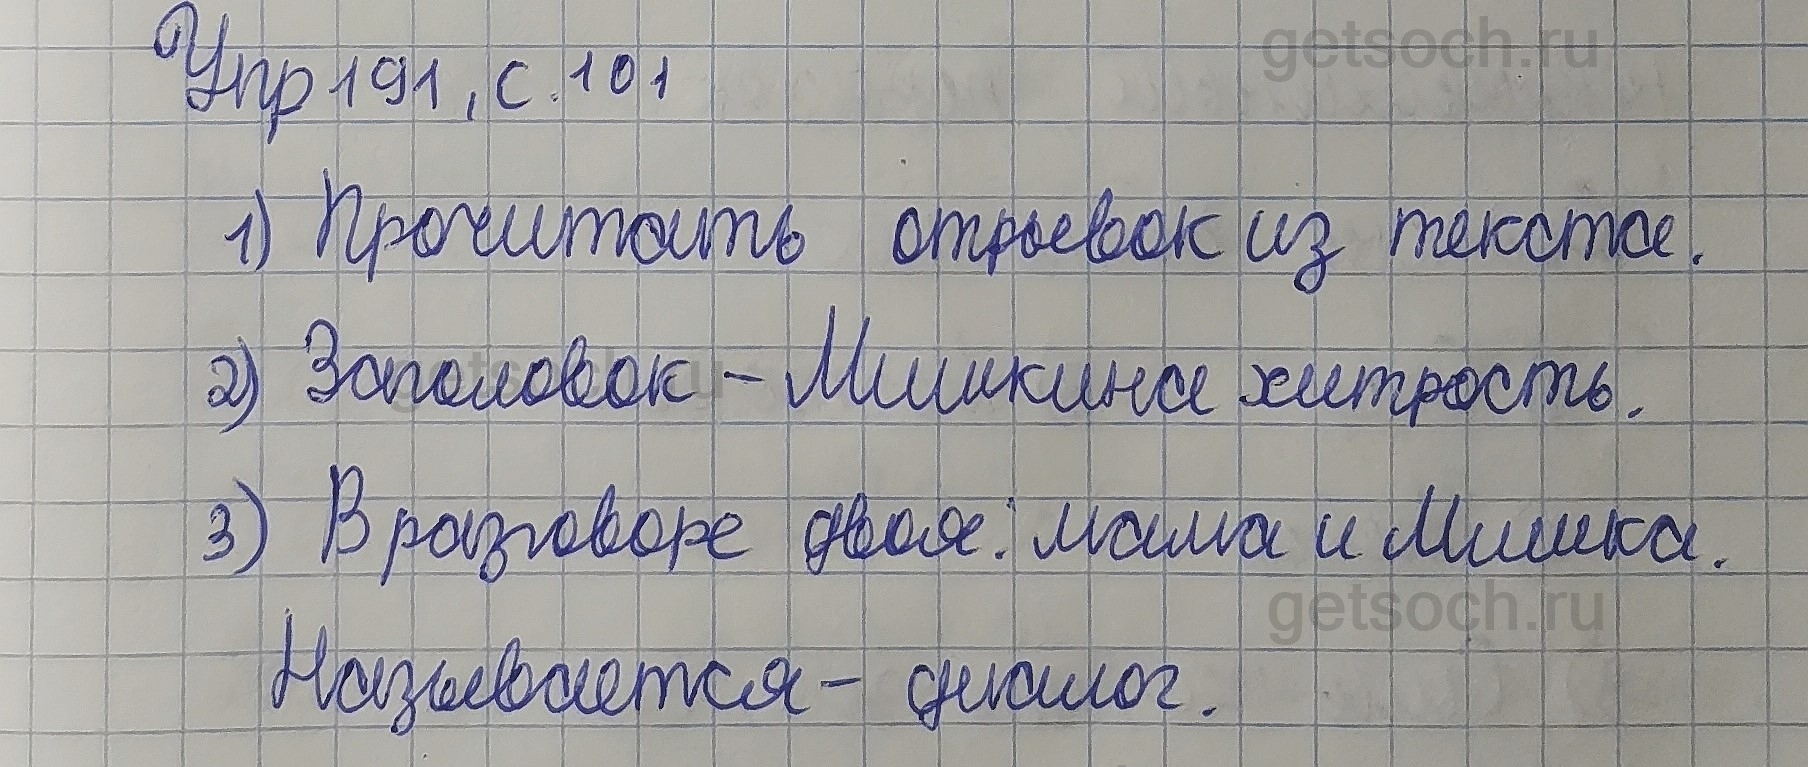 getsoch.ru
Упр 191, с. 101
1) Прочитать отрывок из текста.
2) Заголовок – Мишкина хитрость.
getsoch.ru
3) В разговоре двое: мама и Мишка.
getsoch.ru
Называется – диалог.